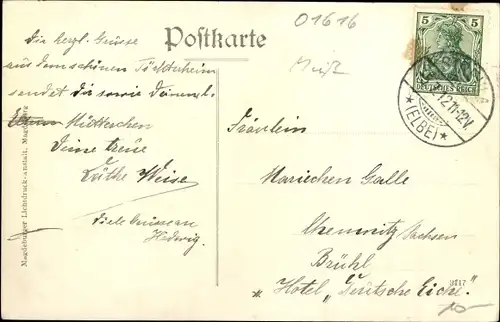 01616
Postkarte
Meiß
5
5
DEUTSCHES REICH
12.11.12V.
*(ELBE)*
Die herzl. Grüsse
aus dem schönen Töchterheim
sendet Dir sowie Deinem l.
Mütterchen
Deine treue
Käthe Weise
Viele Grüsse an
Hedwig.
Fräulein
Mariechen Galle
Chemnitz Sachsen
Brühl
Hotel „Deutsche Eiche."
Magdeburger Lichtdruck-anstalt, Magdeburg
3117